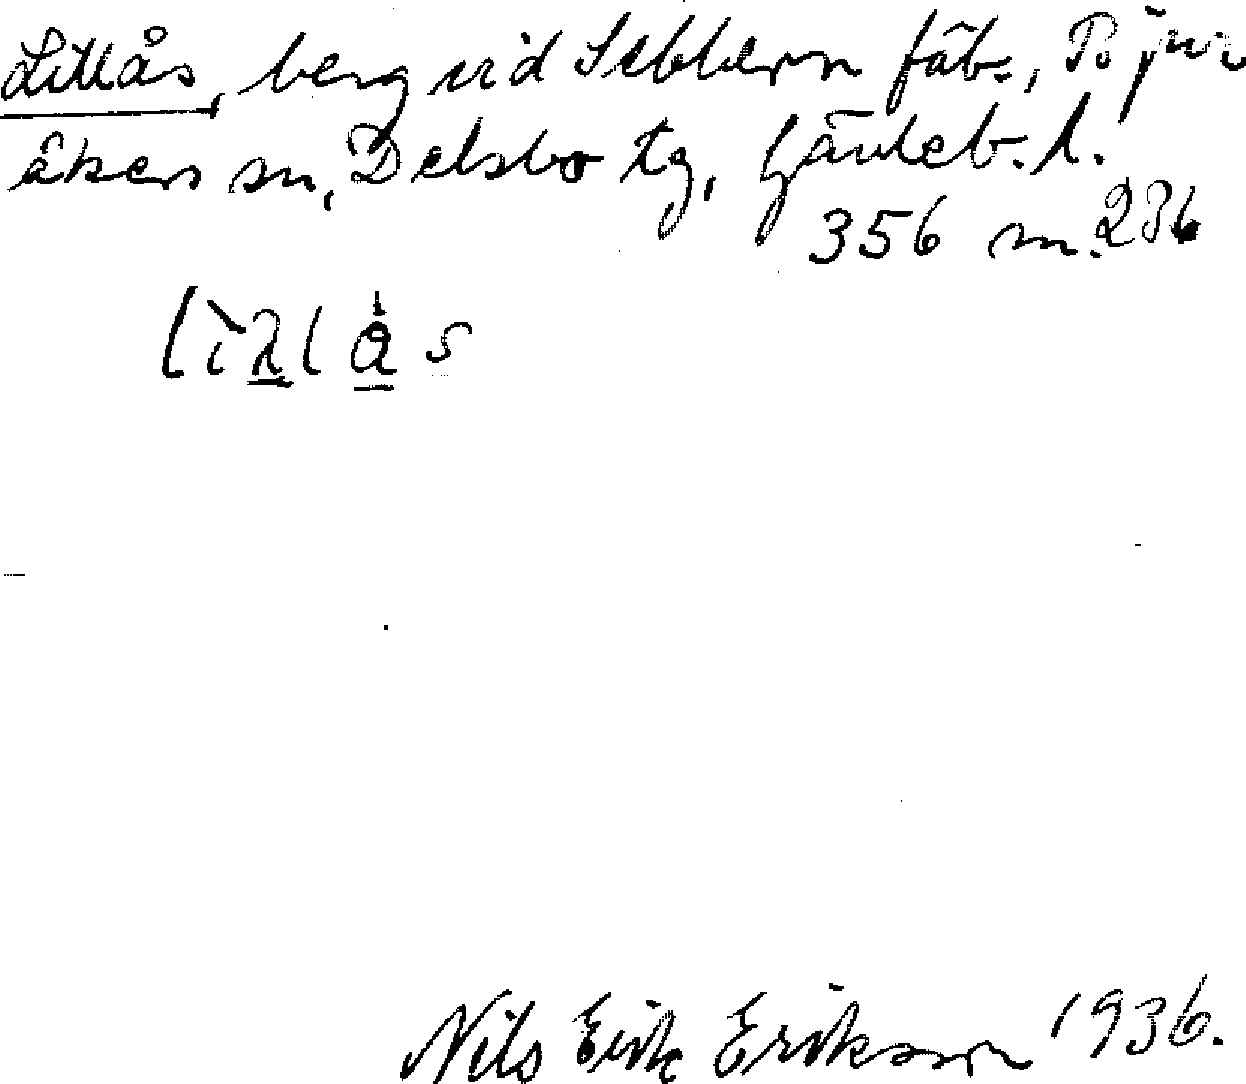 Lillås, berg vid fäb., Bjur-
åkers sn, Delsbo tg, Gävleb. l.
356 m. 236
Nils Erik Eriksson 1936.